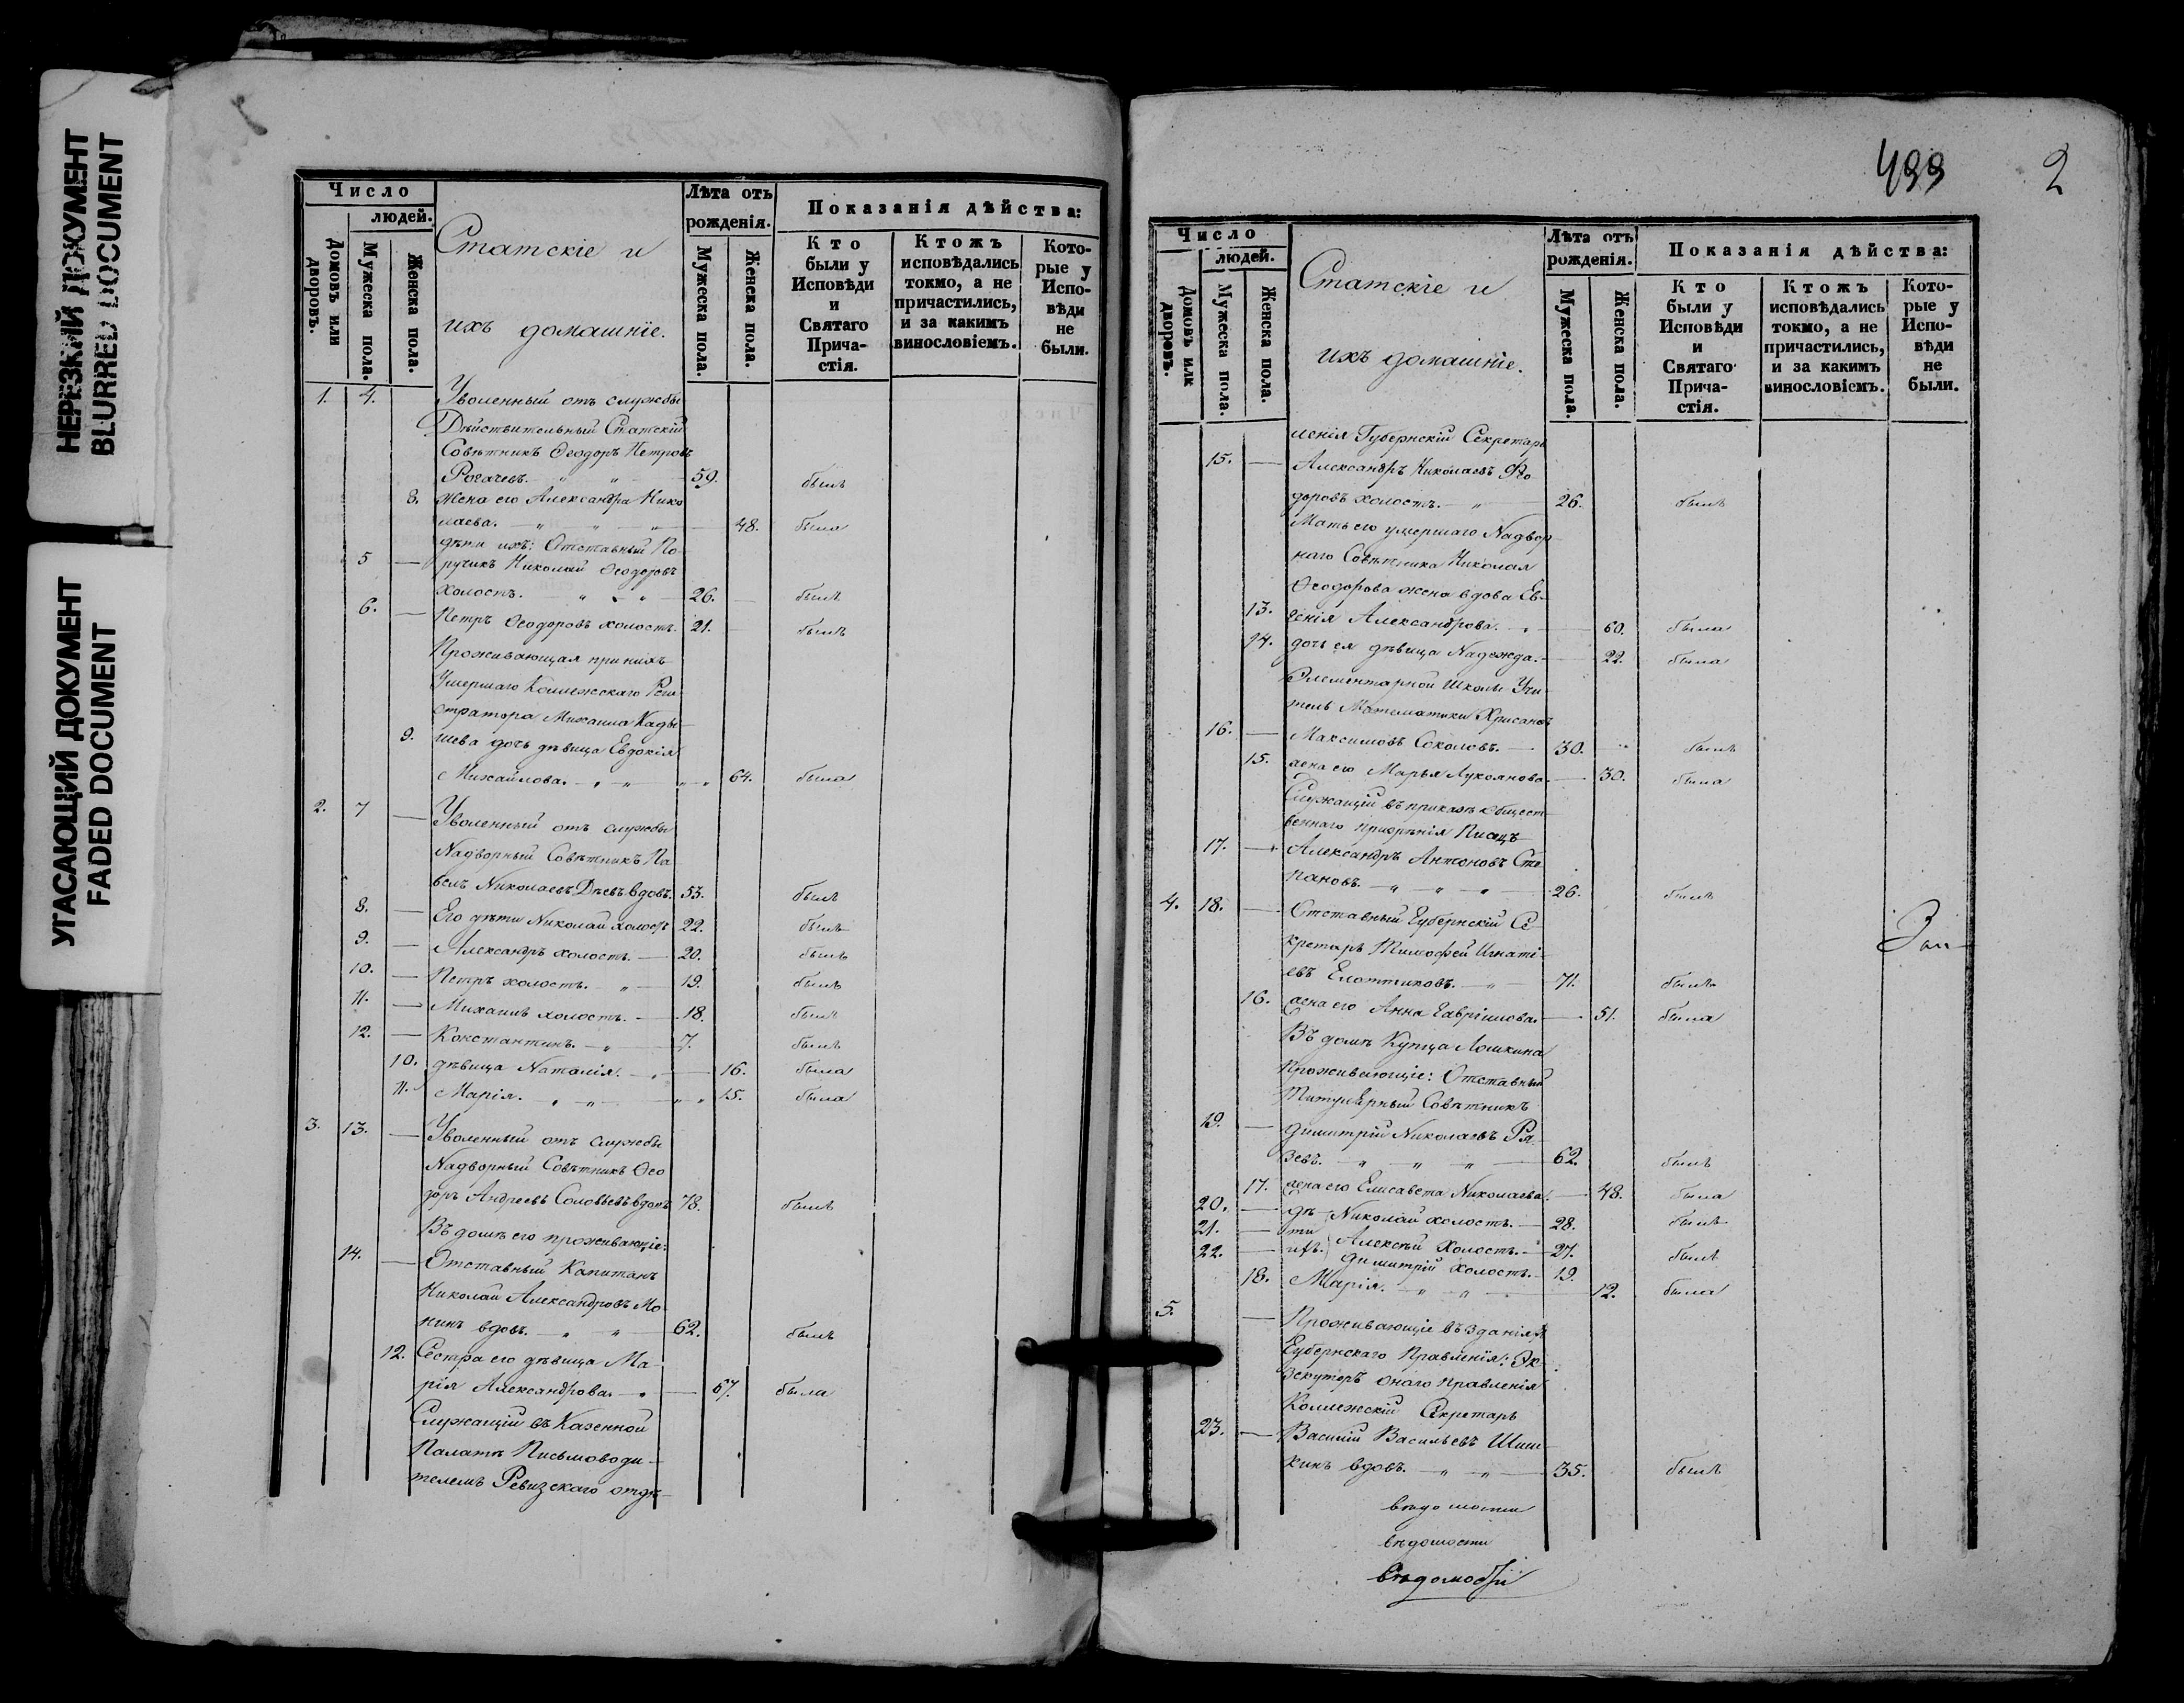 НЕРЕЗКИЙ ДОКУМЕНТ
BLURRED DOCUMENT
УГАСАЮЩИЙ ДОКУМЕНТ
FADED DOCUMENT
Число
людей.
Домовъ или дворовъ.
Мужеска пола.
Женска пола.
Статскіе и
ихъ домашніе.
Лѣта отъ рожденія.
Мужеска пола.
Женска пола.
Показанія дѣйства:
Кто были у Исповѣди и Святаго Прича-стія.
Ктожъ исповѣдались токмо, а не причастились, и за какимъ винословіемъ.
Кото-рые у Испо-вѣди не были.
1. 4. Уволенный отъ службы
Дѣйствительный Статскій
Совѣтникъ Ѳеодоръ Петровъ
Рогачевъ. 59. былъ
8. Жена его Александра Нико
лаева. 48. была
дѣти ихъ: Отставный По-
5 ручикъ Николай Ѳеодоровъ
холостъ. 26. былъ
6. Петръ Ѳеодоровъ холостъ. 21. былъ
Проживающая при нихъ
Умершаго Коллежскаго Реги-
стратора Михаила Кады-
9. шева дочь дѣвица Евдокія
Михайлова. 64. была
2. 7 Уволенный отъ службы
Надворный Совѣтникъ Па
велъ Николаевъ вдовъ. 53. былъ
8. Его дѣти Николай холостъ 22. былъ
9. Александръ холостъ. 20. былъ
10. Петръ холостъ. 19. былъ
11. Михаилъ холостъ. 18. былъ
12. Константинъ. 7. былъ
10. дѣвица Наталія. 16. была
11. Марія. 15. была
3. 13. Уволенный отъ службы
Надворный Совѣтникъ Ѳео
доръ Андреевъ Соловьевъ вдовъ 78. былъ
Въ домѣ его проживающіе:
14. Отставный Капитанъ
Николай Александровъ Мо-
нинъ вдовъ. 62. былъ
12. Сестра его дѣвица Ма-
рія Александрова. 67. была
Служащій въ Казенной
Палатѣ Письмоводи-
телемъ Ревизскаго отдѣ-
499 2
Число
людей.
Домовъ или дворовъ.
Мужеска пола.
Женска пола.
Статскіе и
ихъ домашніе.
Лѣта отъ рожденія.
Мужеска пола.
Женска пола.
Показанія дѣйства:
Кто были у Исповѣди и Святаго Прича-стія.
Ктожъ исповѣдались токмо, а не причастились, и за какимъ винословіемъ.
Кото-рые у Испо-вѣди не были.
ленія Губернскій Секретарь
15. Александръ Николаевъ Ѳео
доровъ холостъ. 26. былъ
Мать его умершаго Надвор
наго Совѣтника Николая
Ѳеодорова жена вдова Ев-
13. генія Александрова. 60. была
14. дочь ея дѣвица Надежда. 22. была
Элементарной Школы Учи-
тель Математики Хрисанѳъ
16. Максимовъ Соколовъ. 30. былъ
15. жена его Марья Лукоянова. 30. была
Служащій въ приказѣ общест
веннаго призрѣнія Писецъ
17. Александръ Антоновъ Сте
пановъ. 26. былъ
4. 18. Отставный Губернскій Се-
кретарь Тимофей Игнаті-
евъ 71. былъ
16. жена его Анна Гавріилова. 51. была
Въ домѣ Купца Ломкина
Проживающіе: Отставный
Титулярный Совѣтникъ
19. Димитрій Николаевъ Ря-
зевъ. 62. былъ
17. жена его Елисавета Николаева. 48. была
20. дѣ- Николай холостъ. 28. былъ
21. ти Алексѣй Холостъ. 27. былъ
22. ихъ: Димитрій холостъ. 19.
18. Марія. 12. была
5. Проживающіе въ зданіяхъ
Губернскаго Правленія: Эк-
зекуторъ онаго правленія
Коллежскій Секретарь
23. Василій Васильевъ Шиш
кинъ вдовъ. 35. былъ
вѣдомости
вѣдомости
Вѣдомости